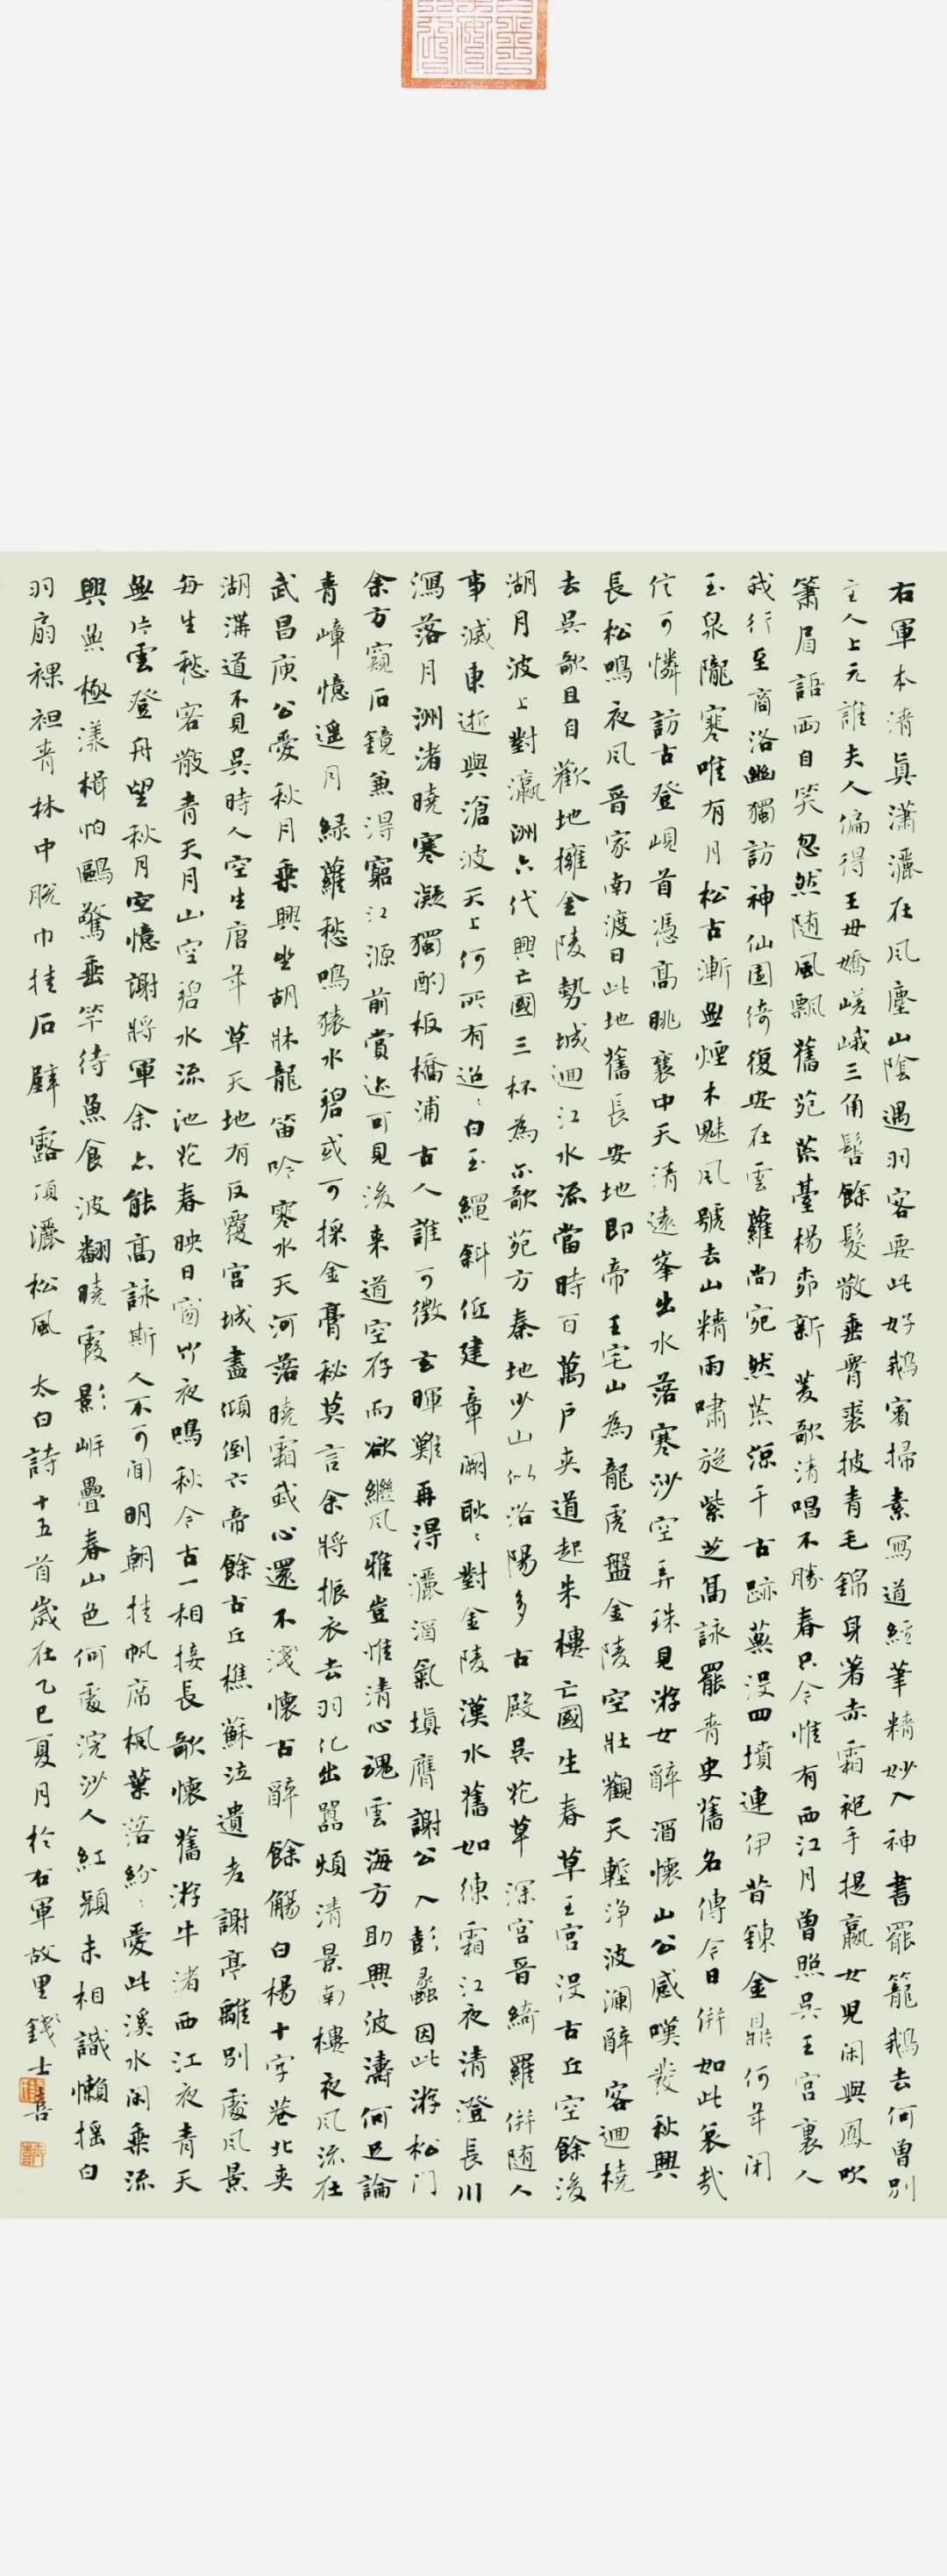 右軍本清真瀟灑在風塵山陰遇羽客要此好鵝賓掃素寫道經筆精妙入神書罷籠鵝去何曾別
主人上元誰夫人偏得王母嬌嵯峨三角髻餘髮散垂胷裘披青毛錦身著赤霜袍手提嬴女兒閑與鳳吹
簫眉語兩自笑忽然隨風飄舊苑荒臺楊柳新菱歌清唱不勝春只今惟有西江月曾照吳王宮裏人
我行至商洛幽獨訪神仙園綺復安在雲蘿尚宛然荒涼千古跡蕪沒四墳連伊昔鍊金鼎何年閉
玉泉隴寒唯有月松古漸無煙木魅風號去山精雨嘯旋紫芝高詠罷青史舊名傳今日併如此哀哉
信可憐訪古登峴首憑高眺襄中天清遠峯出水落寒沙空弄珠見游女醉酒懷山公感嘆發秋興
長松鳴夜風晉家南渡日此地舊長安地即帝王宅山為龍虎盤金陵空壯觀天塹淨波瀾醉客迴橈
去吳歌且自歡地擁金陵勢城迴江水流當時百萬戶夾道起朱樓亡國生春草王宮沒古丘空餘後
湖月波上對瀛洲六代興亡國三杯為尒歌苑方秦地少山似洛陽多古殿吳花草深宮晉綺羅併隨人
事滅東逝與滄波天上何所有迢〻白玉繩斜低建章闕耿〻對金陵漢水舊如練霜江夜清澄長川
瀉落月洲渚曉寒凝獨酌板橋浦古人誰可徵玄暉難再得灑酒氣填膺謝公入彭蠡因此游松門
余方窺石鏡兼得窮江源前賞迹可見後來道空存而欲繼風雅豈惟清心魂雲海方助興波濤何足論
青嶂憶遥月綠蘿愁鳴猿水碧或可採金膏秘莫言余將振衣去羽化出囂煩清景南樓夜風流在
武昌庾公愛秋月乘興坐胡牀龍笛吟寒水天河落曉霜我心還不淺懷古醉餘觴白楊十字巷北夾
湖溝道不見吳時人空生唐年草天地有反覆宮城盡傾倒六帝餘古丘樵蘇泣遺老謝亭離別處風景
每生愁客散青天月山空碧水流池花春映日窗竹夜鳴秋今古一相接長歌懷舊游牛渚西江夜青天
無片雲登舟望秋月空憶謝將軍余亦能高詠斯人不可聞明朝挂帆席楓葉落紛〻愛此溪水閑乘流
興無極漾楫怕鷗驚垂竿待魚食波翻曉霞影岸疊春山色何處浣沙人紅顏未相識懶搖白
羽扇裸袒青林中脫巾挂石壁露頂灑松風 太白詩十五首歲在乙巳夏月於右軍故里錢士喜